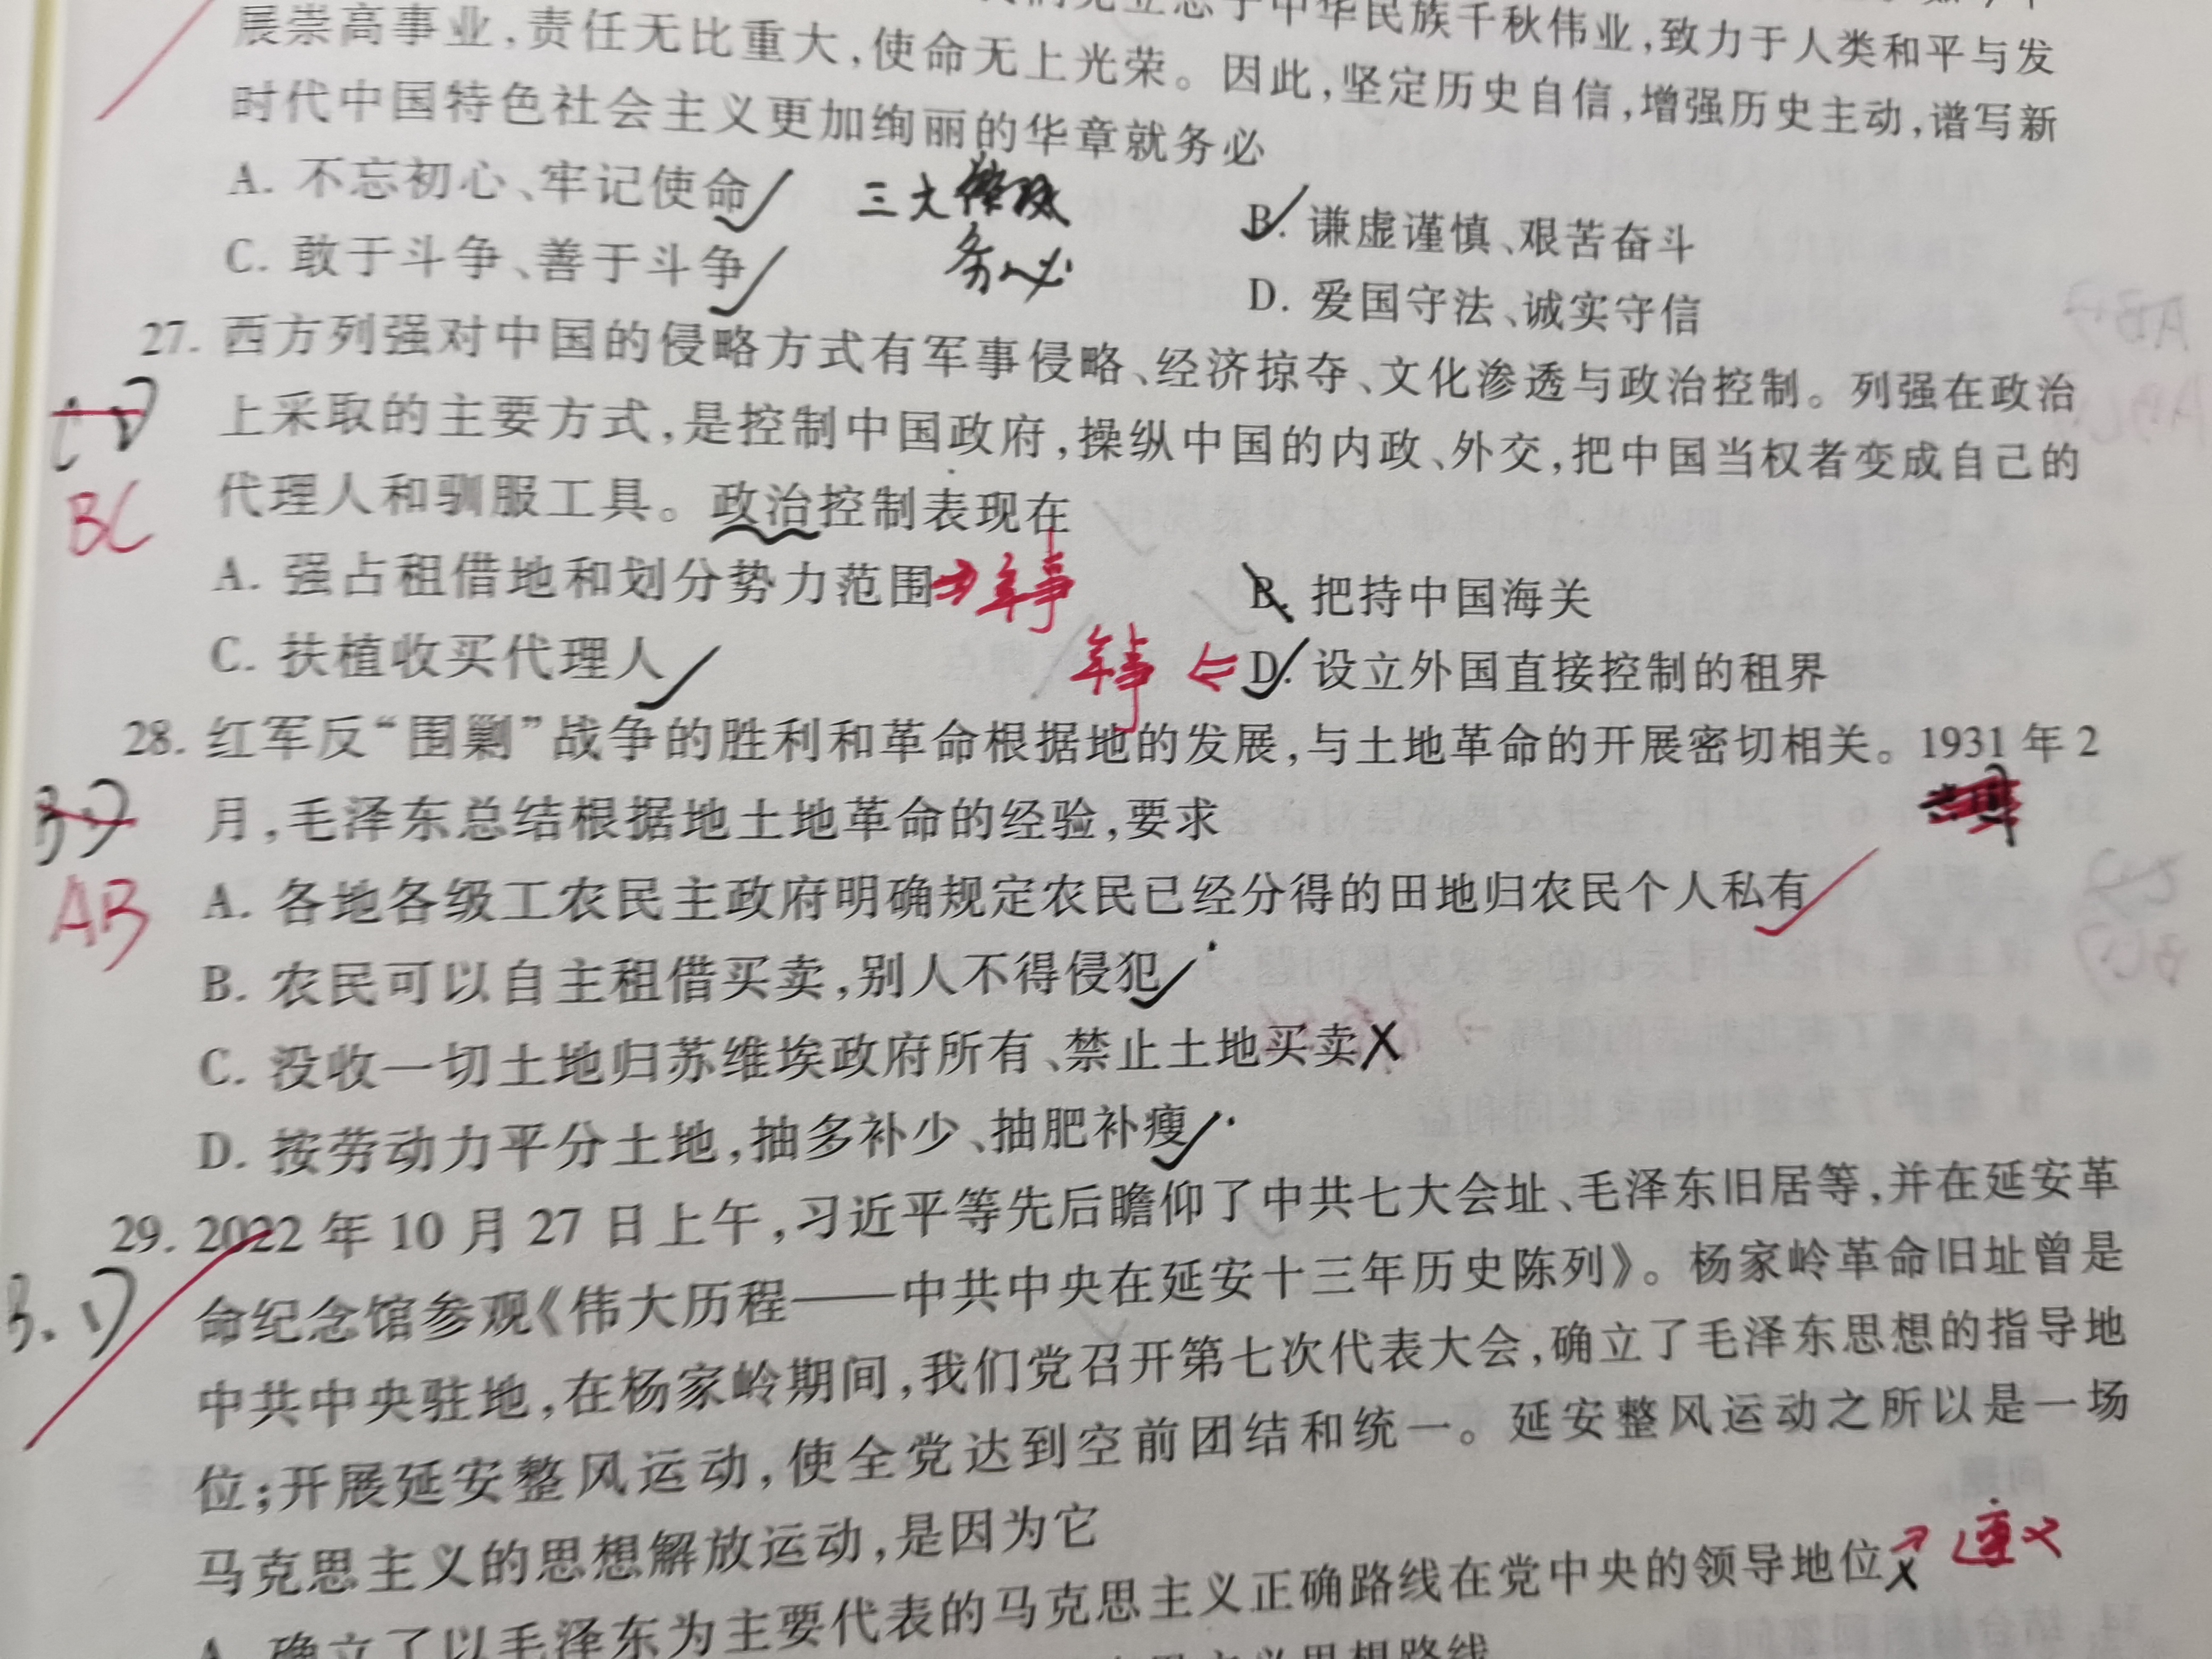 中华民族千秋伟业,致力于人类和平与发
展崇高事业,责任无比重大,使命无上光荣。因此,坚定历史自信,增强历史主动,谱写新
时代中国特色社会主义更加绚丽的华章就务必
A. 不忘初心、牢记使命
三大
务必
B. 谦虚谨慎、艰苦奋斗
C. 敢于斗争、善于斗争
D. 爱国守法、诚实守信
27. 西方列强对中国的侵略方式有军事侵略、经济掠夺、文化渗透与政治控制。列强在政治
上采取的主要方式,是控制中国政府,操纵中国的内政、外交,把中国当权者变成自己的
代理人和驯服工具。政治控制表现在
C D
BC
A. 强占租借地和划分势力范围
军事
B. 把持中国海关
C. 扶植收买代理人
军事
D. 设立外国直接控制的租界
28. 红军反“围剿”战争的胜利和革命根据地的发展,与土地革命的开展密切相关。1931 年 2
月,毛泽东总结根据地土地革命的经验,要求
BD
AB
A. 各地各级工农民主政府明确规定农民已经分得的田地归农民个人私有
B. 农民可以自主租借买卖,别人不得侵犯
C. 没收一切土地归苏维埃政府所有、禁止土地买卖
D. 按劳动力平分土地,抽多补少、抽肥补瘦
29. 2022 年 10 月 27 日上午,习近平等先后瞻仰了中共七大会址、毛泽东旧居等,并在延安革
命纪念馆参观《伟大历程——中共中央在延安十三年历史陈列》。杨家岭革命旧址曾是
中共中央驻地,在杨家岭期间,我们党召开第七次代表大会,确立了毛泽东思想的指导地
位;开展延安整风运动,使全党达到空前团结和统一。延安整风运动之所以是一场
马克思主义的思想解放运动,是因为它
B. D
A. 确立了以毛泽东为主要代表的马克思主义正确路线在党中央的领导地位
遵义